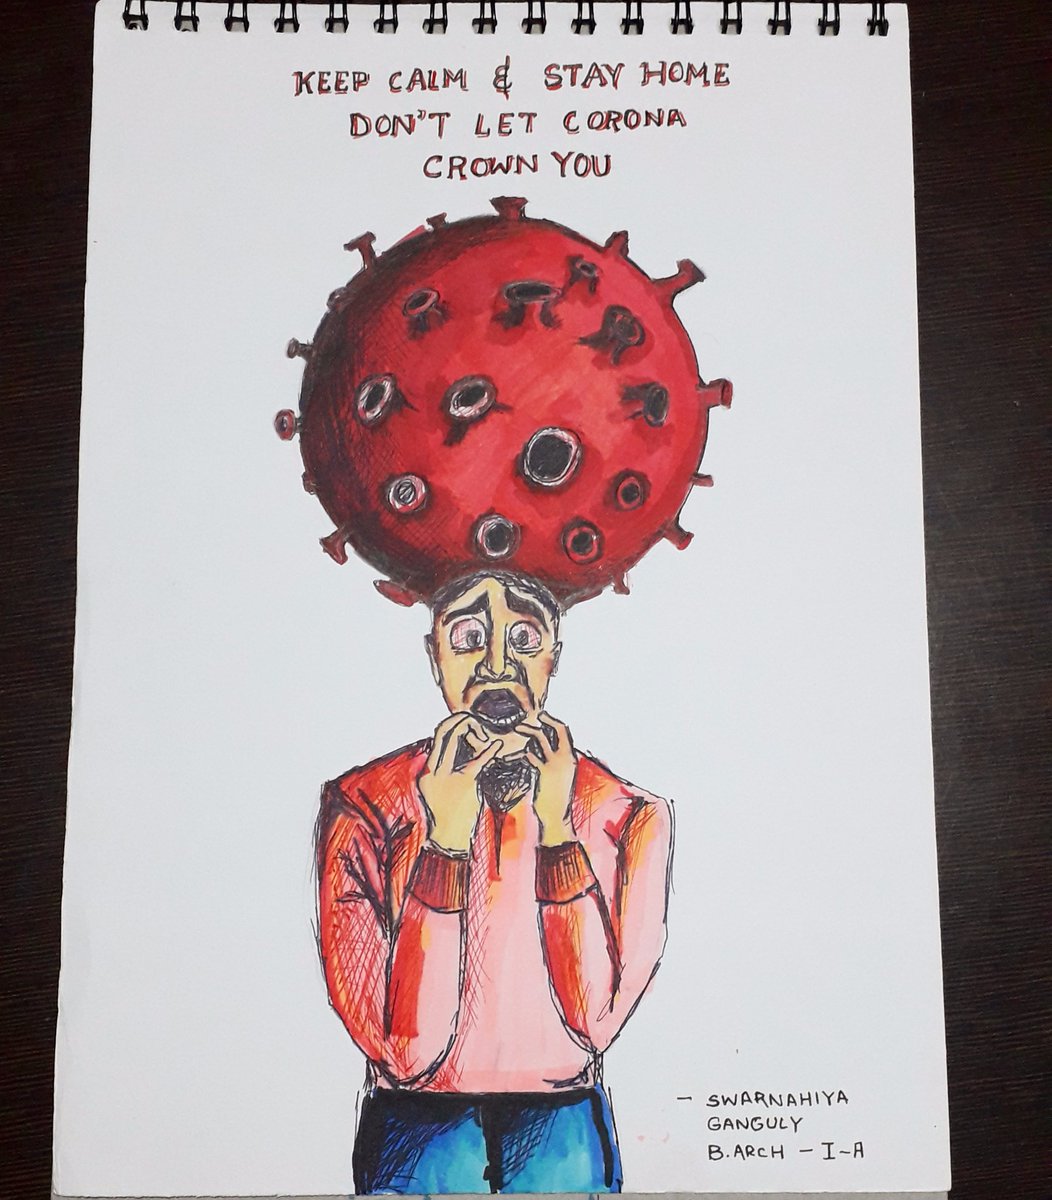 KEEP CALM & STAY HOME
DON'T LET CORONA
CROWN YOU
- SWARNAHIYA
GANGULY
B.ARCH - I-A